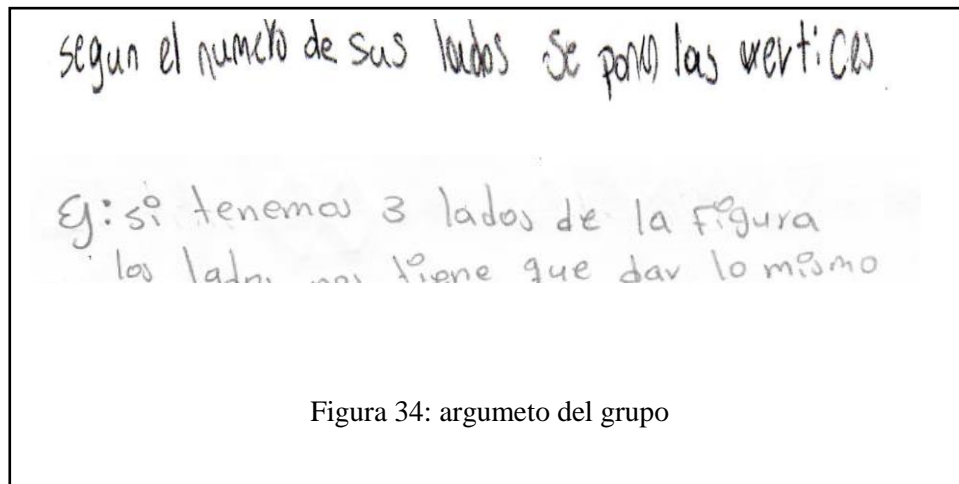 segun el numero de sus lados se ponen las vertices
Ej: si tenemos 3 lados de la figura
los lados nos tiene que dar lo mismo
Figura 34: argumeto del grupo